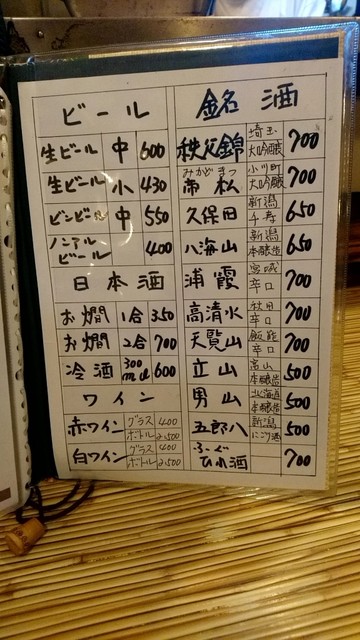 ビール
生ビール 中 600
生ビール 小 430
ビンビール 中 550
ノンアル
ビール 400
日本酒
お燗 1合 350
お燗 2合 700
冷酒 300ml 600
ワイン
赤ワイン グラス 400
ボトル 2,500
白ワイン グラス 400
ボトル 2,500
銘酒
秩父錦 埼玉 大吟醸 700
みかどまつ
帝松 小川町 大吟醸 700
久保田 新潟 千寿 650
八海山 新潟 本醸造 650
浦霞 宮城 辛口 700
高清水 秋田 辛口 700
天覧山 飯能 辛口 700
立山 富山 本醸造 500
男山 北海道 本醸造 500
五郎八 新潟 にごり酒 500
ふぐ
ひれ酒 700